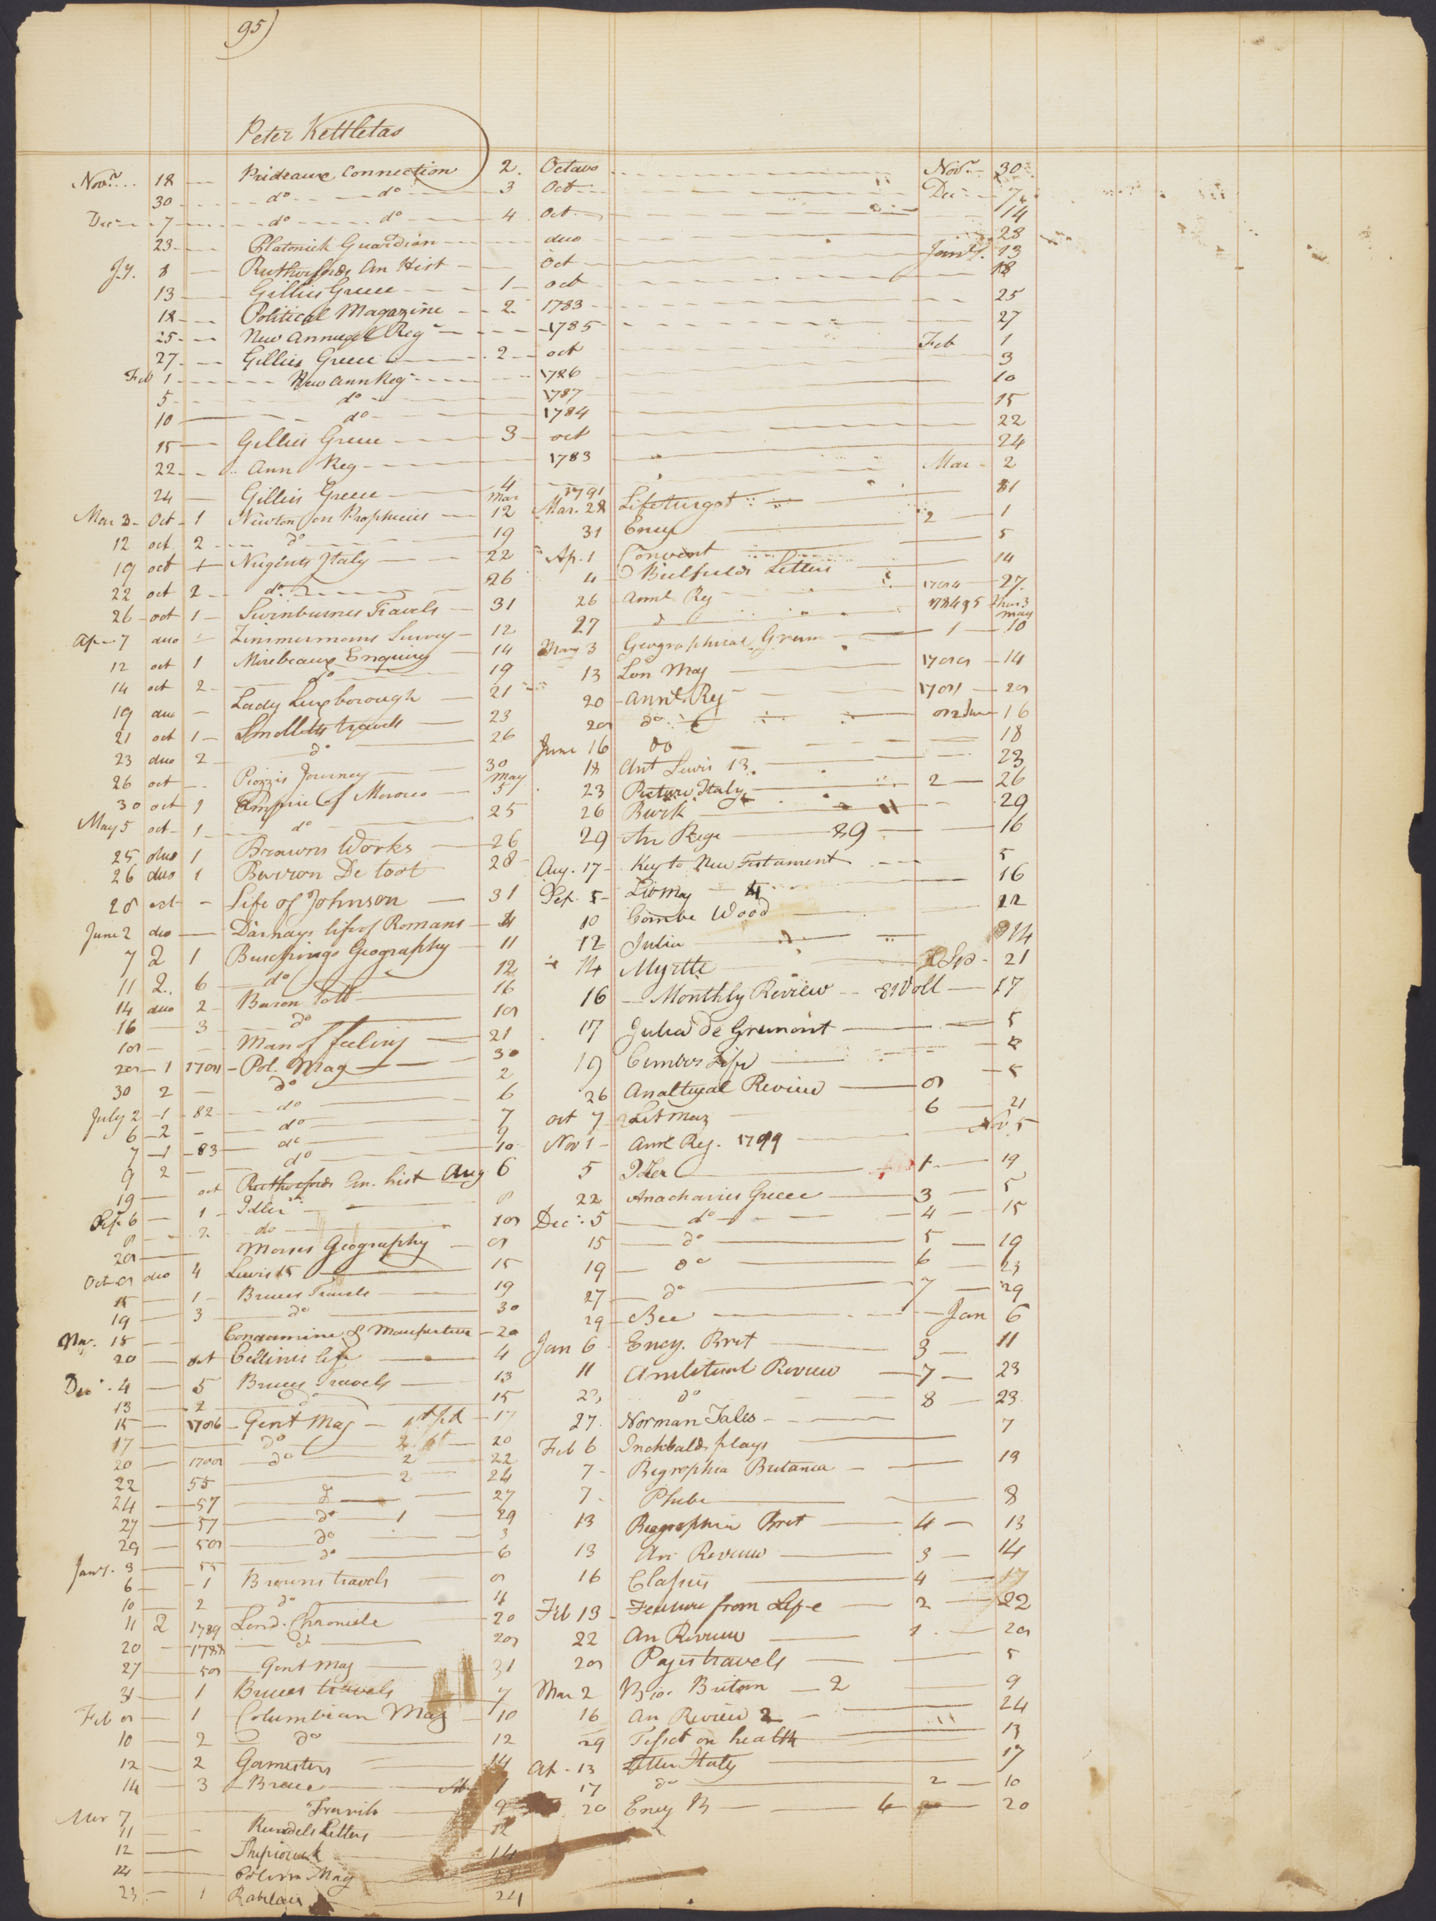 95)
Peter Kettletas
Novr 18 Prideaux Connection 2. Octavo Novr 30
30 do do 3 Oct Dec 7
Dec 7 do do 4 oct 14
23 Platonick Guardian duo 28
Jy. 8 Rutherfords An Hist Oct Jany. 13
13 Gillies Greece 1 oct 18
18 Political Magazine 2 1783 25
25 New Annual Reg 1785 27
27 Gillies Greece 2 oct Feb 1
Feb 1 New Ann Reg 1786 3
5 do 1787 10
10 do 1784 15
15 Gillies Greece 3 oct 22
22 Ann Reg 1783 24
24 Gillies Greece 4 Mar 2
Mar 3 Oct 1 Newton on Prophecies Mar 12
12 oct 2 do 19
19 oct 1 Nugents Italy 22
22 oct 2 do 26
26 oct 1 Swinburnes Travels 31
Ap 7 duo Zimmermans Survey 12
12 oct 1 Mirebeaux Enquiry 14
14 oct 2 do 19
19 duo Lady Luxborough 21
21 oct 1 Smolletts travels 23
23 duo 2 do 26
26 oct Piozzis Journey 30
30 oct 1 Empire of Morocco May 5
May 5 oct 1 do 25
25 duo 1 Browns Works 26
26 duo 1 Barron De Toot 28
28 oct Life of Johnson 31
June 2 duo Darnays life of Romans 4
7 2 1 Buschings Geography 11
11 2. 6 do 12
14 duo 2 Baron Tott 16
16 3 do 18
18 Man of feeling 21
28 1 1781 Pol. Mag 30
30 2 do 2
July 2 1 82 do 6
6 2 do 7
7 1 83 do 9
9 2 do 10
19 oct Rutherfords An. hist Aug 6
Sep 6 1 Idler 8
8 2 do 18
28 Morses Geography 8
Oct 8 duo 4 Lewis 15 15
15 1 Bruces Travels 19
19 3 do 30
Nov. 15 Condamine & Maupertius 20
20 oct Cellinis life 4
Dec 4 5 Bruces Travels 13
13 2 do 15
15 1786 Gent Mag 1st pt 17
17 do 2 pt 20
20 1788 do 2 22
22 55 2 24
24 57 do 27
27 57 do 1 29
29 58 do 3
Jany. 3 55 do 6
6 1 Browns travels 8
10 2 do 4
11 2 1789 Lond. Chronicle 20
20 1788 do 28
27 58 Gent Mag 31
31 1 Bruces travels 7
Feb 8 1 Columbian Mag 10
10 2 do 12
12 2 Gamesters 14
14 3 Bruce
Travils 9
Mar 7 Rundels Letters 12
12 14
14 Colum Mag
23 1 Rablais 24
1791 31
Mar. 28 Life turgot 2 1
31 Ency 5
Ap. 1 Convent 14
4 Bielfields Letters 27
26 Annl Reg 1784
27 do 1784 & 5 May
May 3 Geographical Gram 1 10
13 Lon Mag 1788 14
20 Annl. Reg 1781 28
28 do 16
June 16 do 18
18 Ant Lewis 13 23
23 Picture Italy 2 26
26 Burk 29
29 An Regr 89 16
Aug. 17 Key to New Testament 5
Sep. 5 Lit Mag 4 16
10 Combe Wood 12
12 Julia 14
14 Myrtle 21
16 Monthly Review 81 Voll 17
17 Julia De Gramont 5
19 Cumbers Life
26 Analtycal Review 8 5
oct 7 Lit Mag 6 21
Nov 1 Annl Reg. Nov. 5
5 Idler 1 19
22 Anacharsis Greece 3 5
Dec. 5 do 4 15
15 do 5 19
19 do 6 23
27 do 7 29
29 Bee Jan 6
Jan 6 Ency. Brit 3 11
11 Analitical Review 7 23
23 do 8 23
27. Norman Tales 7
Feb 6 Inchbalds plays
7 Biographia Britania 13
7 Phebe 8
13 Biographia Brit 4 13
13 An Review 3 14
16 Classis 4 17
Feb 13 Feature from Life 2 22
22 An Review 1 28
28 Pages travels 5
Mar 2 Bio. Britan 2 9
16 An Review 2 24
29 Tissot on health 13
Ap 13 Letter Italy 17
17 do 2 10
20 Ency B 6 20